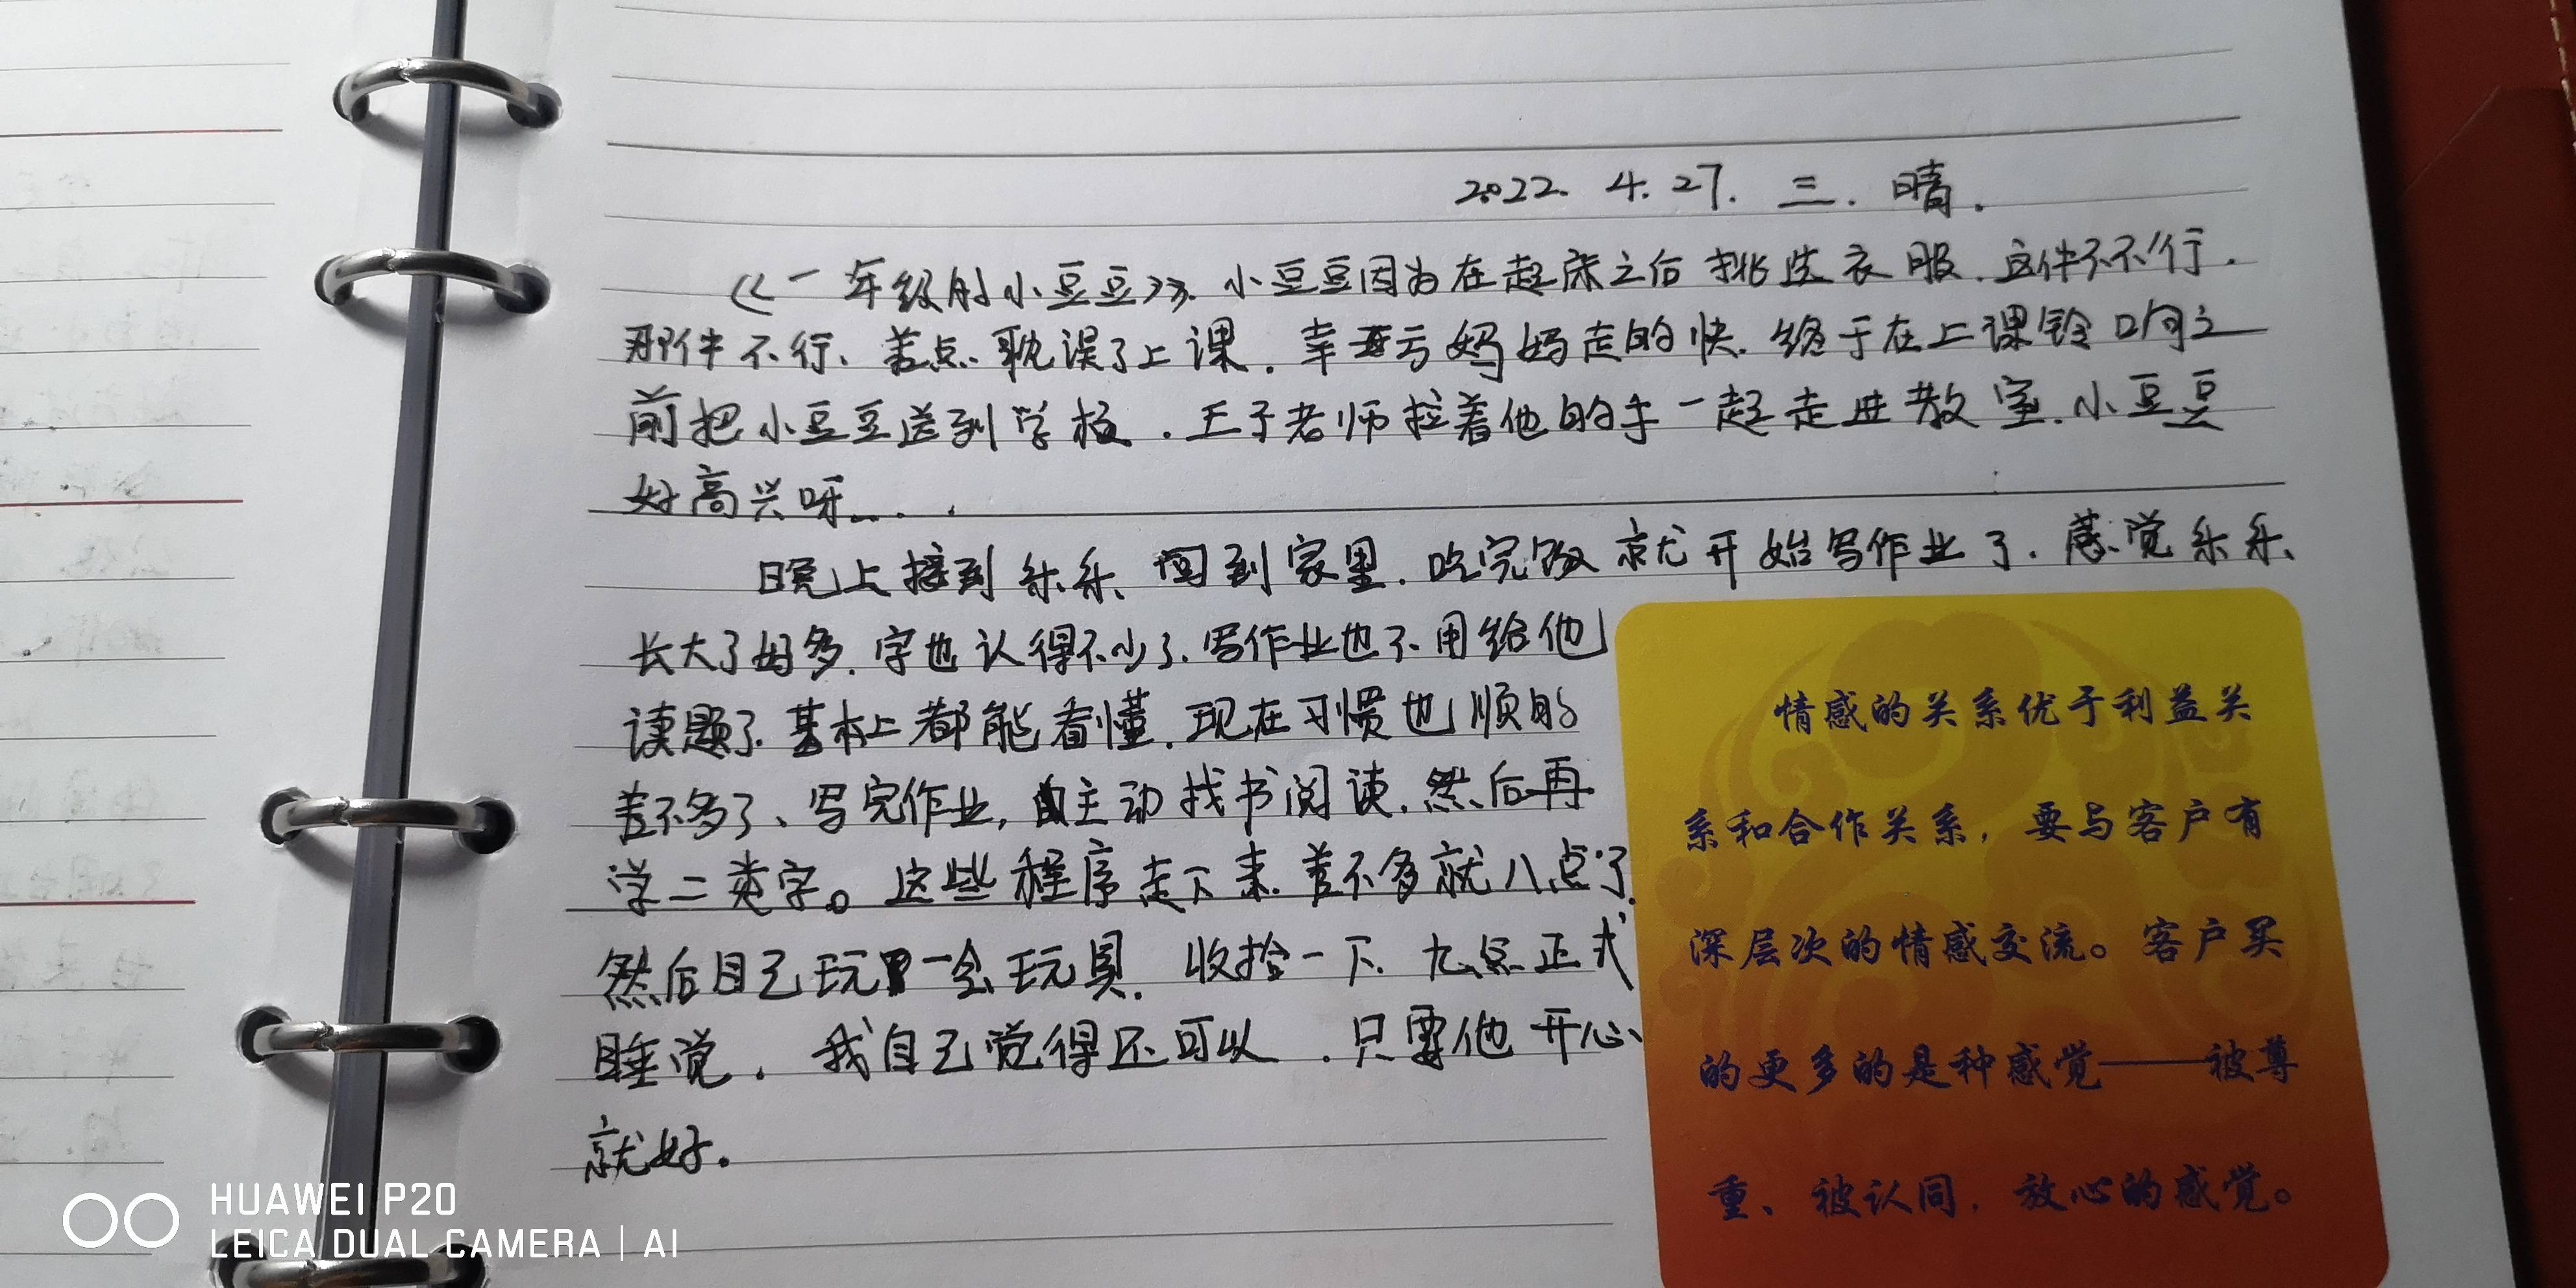 2022. 4. 27. 三. 晴.
《一年级的小豆豆》. 小豆豆因为在起床之后挑选衣服. 这件不行.
那件不行、差点耽误了上课. 幸亏妈妈走的快. 终于在上课铃响之
前把小豆豆送到学校. 王子老师拉着他的手一起走进教室. 小豆豆
好高兴呀.....
晚上接到乐乐回到家里. 吃完饭就开始写作业了. 感觉乐乐
长大了好多. 字也认得不少了. 写作业也不用给他
读题了. 基本上都能看懂. 现在习惯也顺的
差不多了、写完作业, 主动找书阅读. 然后再
学二类字。这些程序走下来. 差不多就八点了.
然后自己玩一会玩具. 收捡一下. 九点正式
睡觉. 我自己觉得还可以. 只要他开心
就好.
情感的关系优于利益关
系和合作关系，要与客户有
深层次的情感交流。客户买
的更多的是种感觉——被尊
重、被认同，放心的感觉。
HUAWEI P20
LEICA DUAL CAMERA | AI